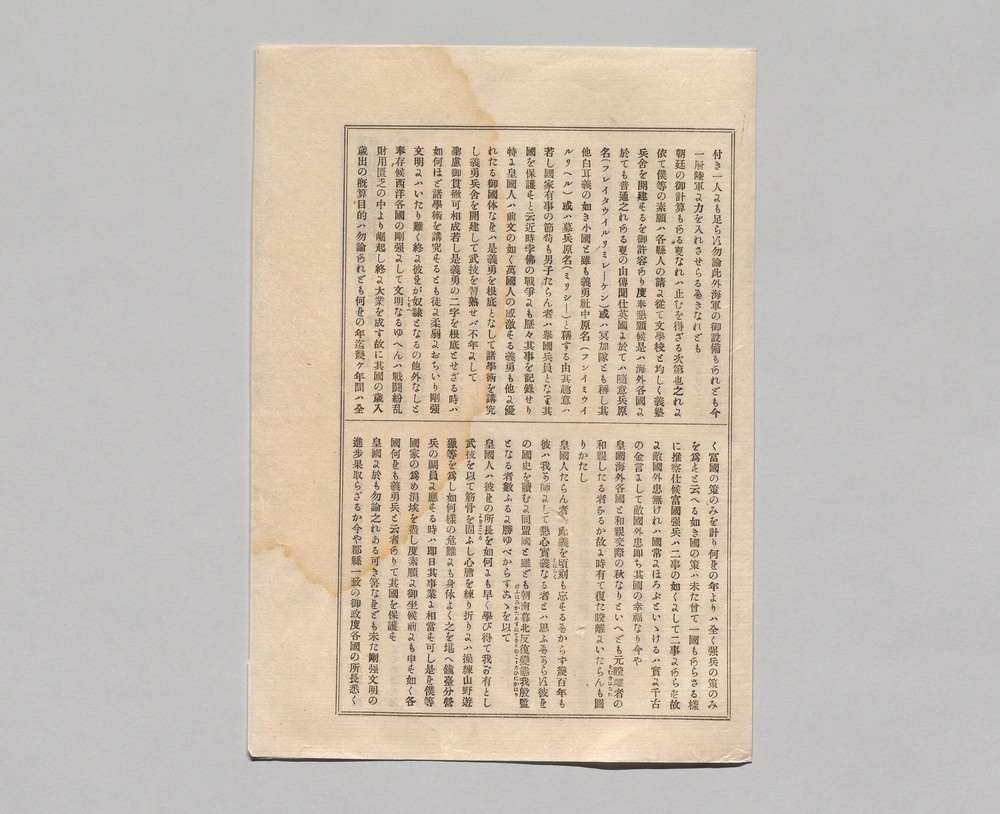 付き一人よも足ら𛂌勿論此外海軍の御設備もあれども今
一層陸軍よ力を入れさせらる𛀸きなれども
朝廷の御計算もある𛀸なれハ止むを得ざる次第也之れよ
依て僕等の素願ハ各縣人の請よ從て文學校と均しく義塾
兵舍を開建せるを御許容あり度奉懇願候是ハ海外各國よ
於ても普通之れある𛀸の由傳聞仕英國よ於てハ隨意兵原
名(フレイタウイルリミレーケン)或ハ冥加隊とも稱し其
他白耳義の如き小國と雖も義勇社中原名(フンイミウイ
ルリヘル)或ハ募兵原名(ミリシー)と稱する由其趣意ハ
若し國家有事の節苟も男子たらん者ハ擧國兵員となて其
國を保護せと云近時孛佛の戰爭よも歴々其事を記録せり
特よ皇國人ハ前文の如く萬國人の感激せる義勇も他よ優
れたる御國体なれハ是義勇を根底となして諸學術を講究
し義勇兵舍を開建して武技を習熟せハ不年よして
聖慮御貫徹可相成若し是義勇の二字を根底とせざる時ハ
如何ほど諸學術を講究せるとも徒よ柔弱よおちいり剛强
文明よハいたり難く終よ彼が奴隷となるの他外なしと
奉存候西洋各國の剛强よして文明なるゆへんハ戰鬪紛乱
財用匱乏の中より崛起し終よ大業を成す故に其國の歳入
歳出の概算目的ハ勿論あれども何の年迄幾ケ年間ハ全
く富國の策のみを計り何の年よりハ全く强兵の策のみ
を爲せと云へる如き國の策ハ未た曾て一國もあらさる樣
に推察仕候富國强兵ハ二事の如くよして二事よあらず故
よ敵國外患無けれハ國常よほろぶといへけるハ實よ千古
の金言よして敵國外患即ち其國の幸福なり今や
皇國海外各國と和親交際の秋なりといへども元睽離者の
和親したる者なるか故よ時有て復た睽離よいたらんも圖
りかたし
皇國人たらん者ハ此義を頃刻も忘せる𛀸からず幾百年も
彼ハ我の師よして懇心實義なる者とハ思ふ𛀸からず彼を
の國史を讀むよ同盟國と雖ども朝南暮北反復變態我殷監
となる者數ふるよ勝ゆべからすあゝを以て
皇國人ハ彼の所長を如何よも早く學び得て我の有とし
武技を以て筋骨を固ふし心膽を練り折りよハ操練山野遊
獵等を爲し如何樣の危難よも身体よく之を堪へ鎮臺分營
兵の鬪員よ應せる時ハ即日其事業よ相當も可し是を僕等
國家の爲め涓埃を盡し度素願よ御坐候前よも申せ如く各
國何も義勇兵と云者ありて其國を保護せ
皇國よ於も勿論之れある可き筈なれども未た剛强文明の
進步果取らざるか今や郡縣一致の御政度各國の所長悉く